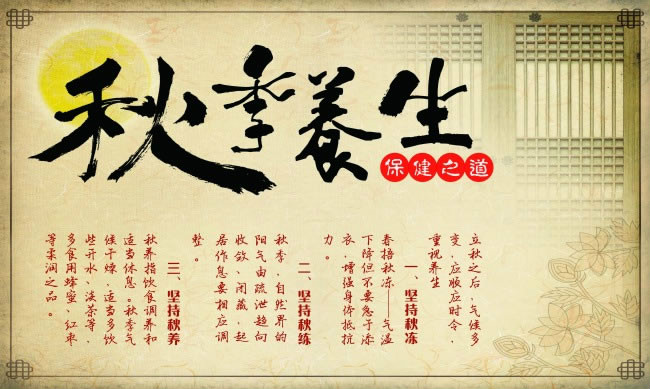 秋季养生
保健之道
立秋之后，气候多
变，应顺应时令，
重视养生
一、坚持秋冻
春捂秋冻——气温
下降但不要急于添
衣，增强身体抵抗
力。
二、坚持秋练
秋季，自然界的
阳气由疏泄趋向
收敛、闭藏，起
居作息要相应调
整。
三、坚持秋养
秋养指饮食调养和
适当休息。秋季气
候干燥，适当多饮
些开水、淡茶等、
多食用蜂蜜、红枣
等柔润之品。